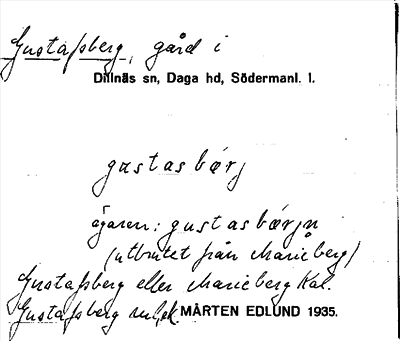 Gustafsberg, gård i
Dillnäs sn, Daga hd, Södermanl. l.
gustasbærj
ägaren: gustasbærjn
(utbrutet från Marieberg)
Gustafsberg eller Marieberg Kal.
Gustafsberg
MÅRTEN EDLUND 1935.